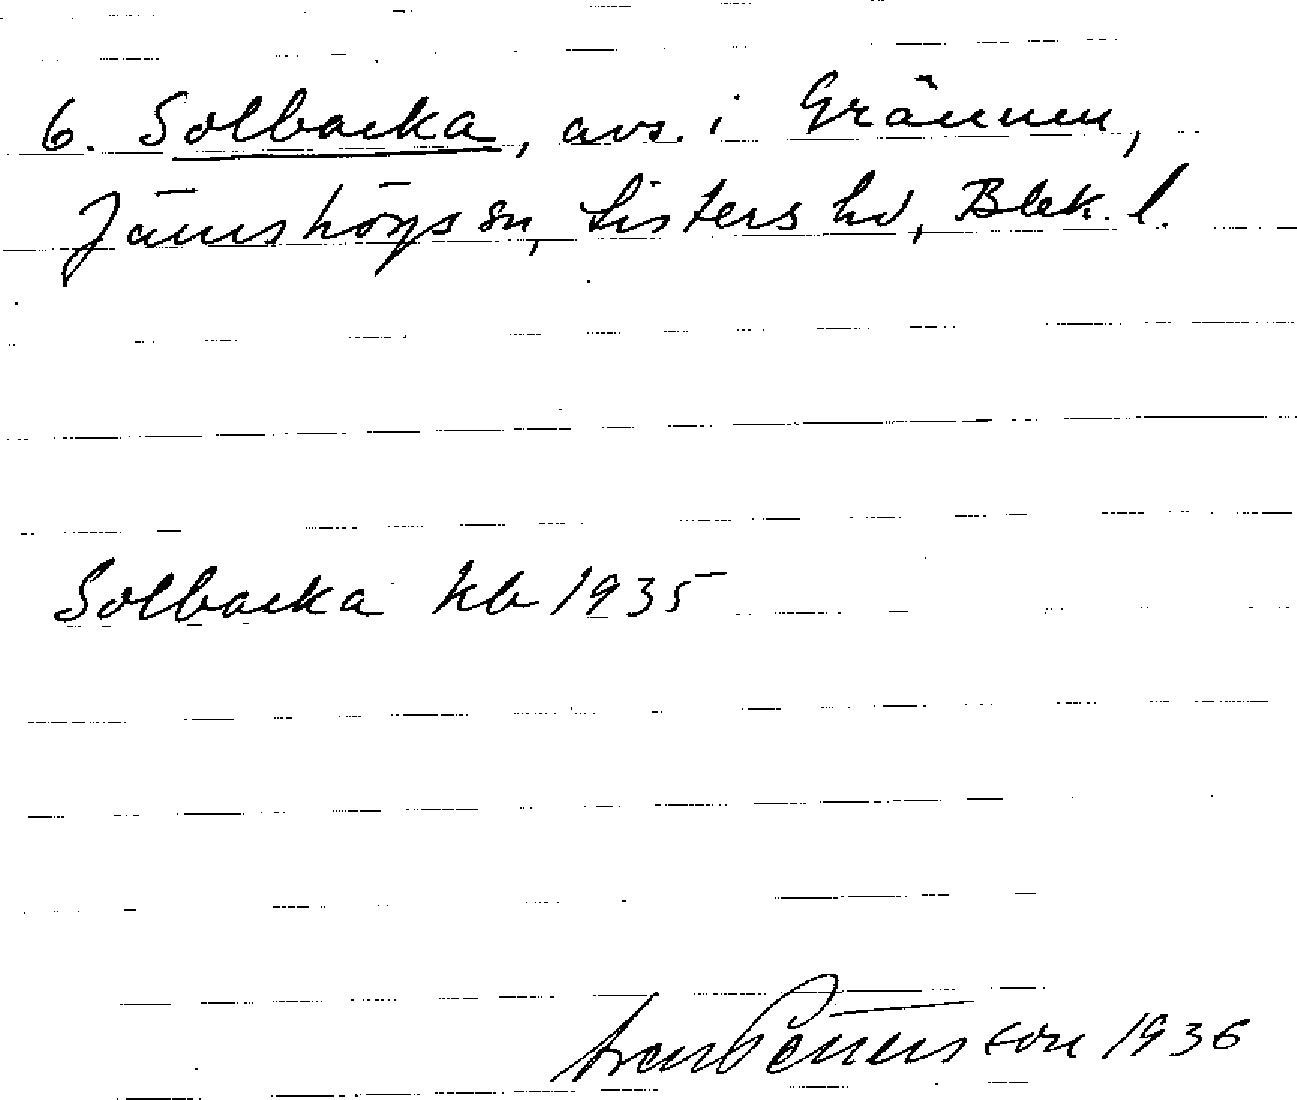 6. Solbacka, avs. i Grännen,
Jämshögs sn, Listers hd, Blek. l.
Solbacka kb 1935
Pettersson 1936